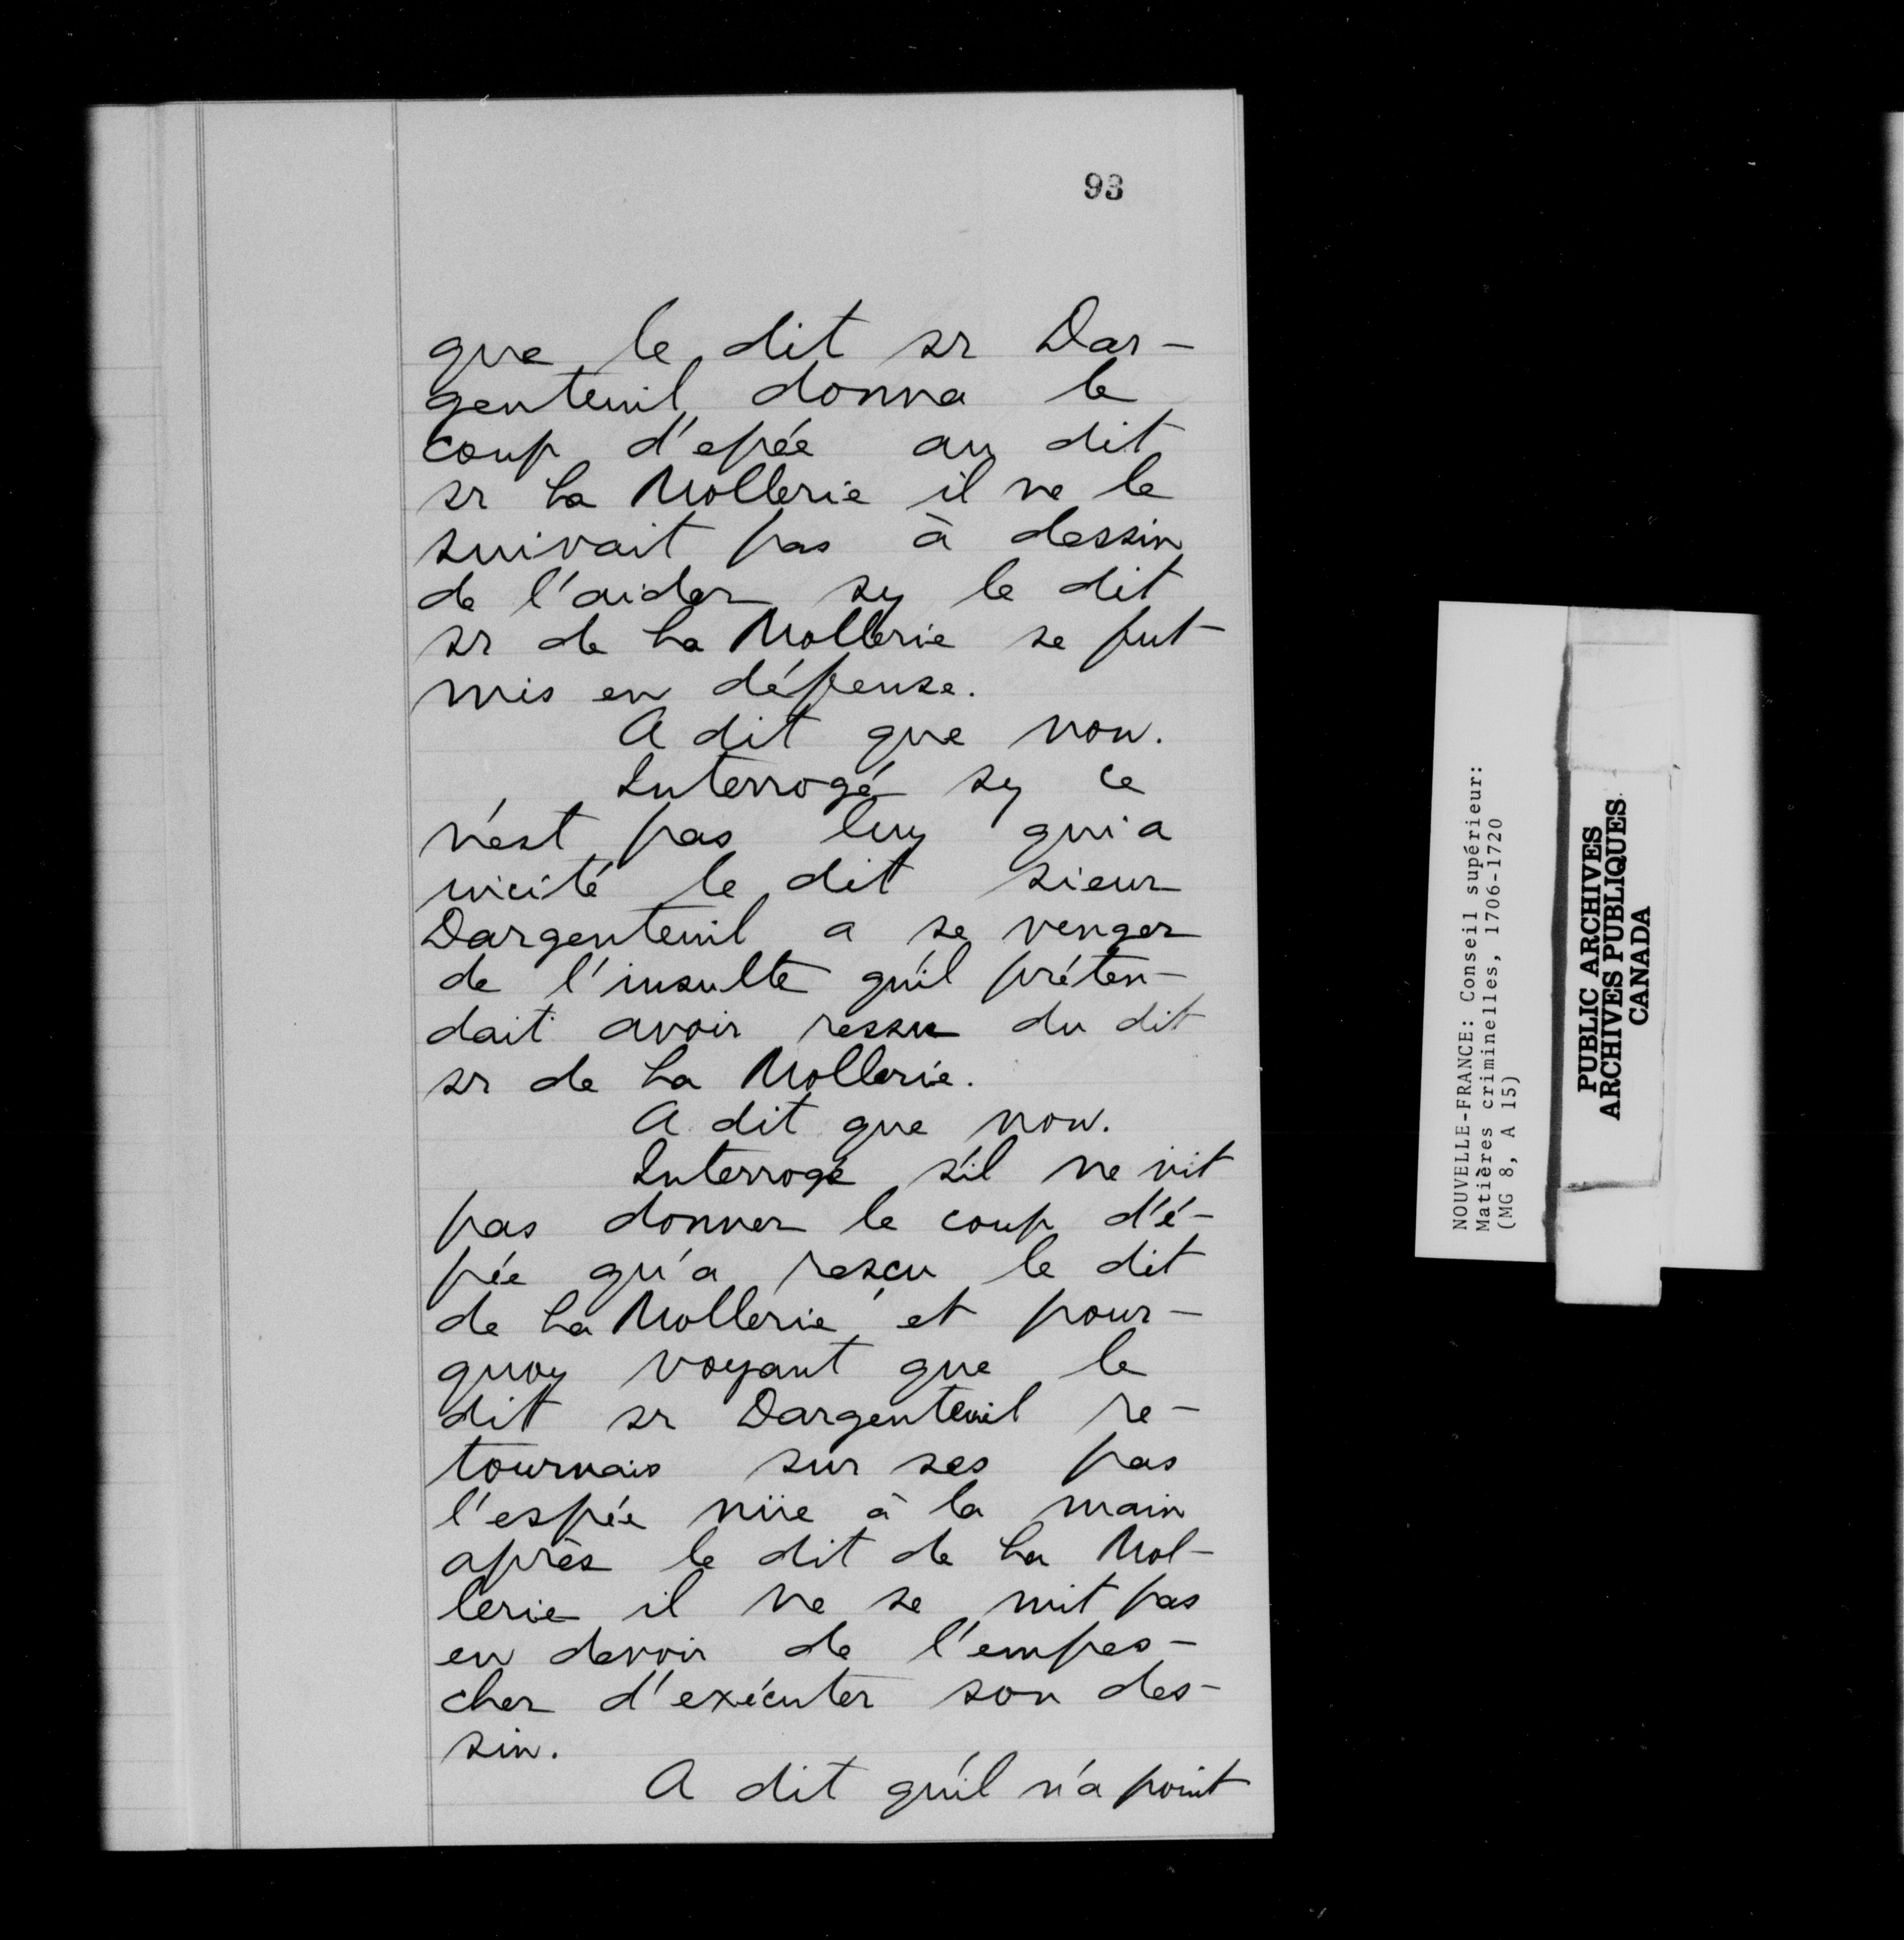 93
que le dit sr Dar-
genteuil donna le
coup d'epée au dit
sr La Mollerie il ne le
suivait pas à dessin
de l'aider sy le dit
sr de La Mollerie se fut
mis en défense.
A dit que non.
Interrogé sy ce
n'est pas luy qui a
incité le dit sieur
Dargenteuil a se venger
de l'insulte qu'il préten-
dait avoir ressu du dit
sr de La Mollerie.
A dit que non.
Interrogé s'il ne vit
pas donner le coup d'é-
pée qu'a rescu le dit
de La Mollerie et pour-
quoy voyant que le
dit sr Dargenteuil re-
tournais sur ses pas
l'espée nüe à la main
après le dit de La Mol-
lerie il ne se mit pas
en devoir de l'empes-
cher d'exécuter son des-
sin.
A dit qu'il n'a point
NOUVELLE-FRANCE: Conseil supérieur:
Matières criminelles, 1706-1720
(MG 8, A 15)
PUBLIC ARCHIVES
ARCHIVES PUBLIQUES
CANADA